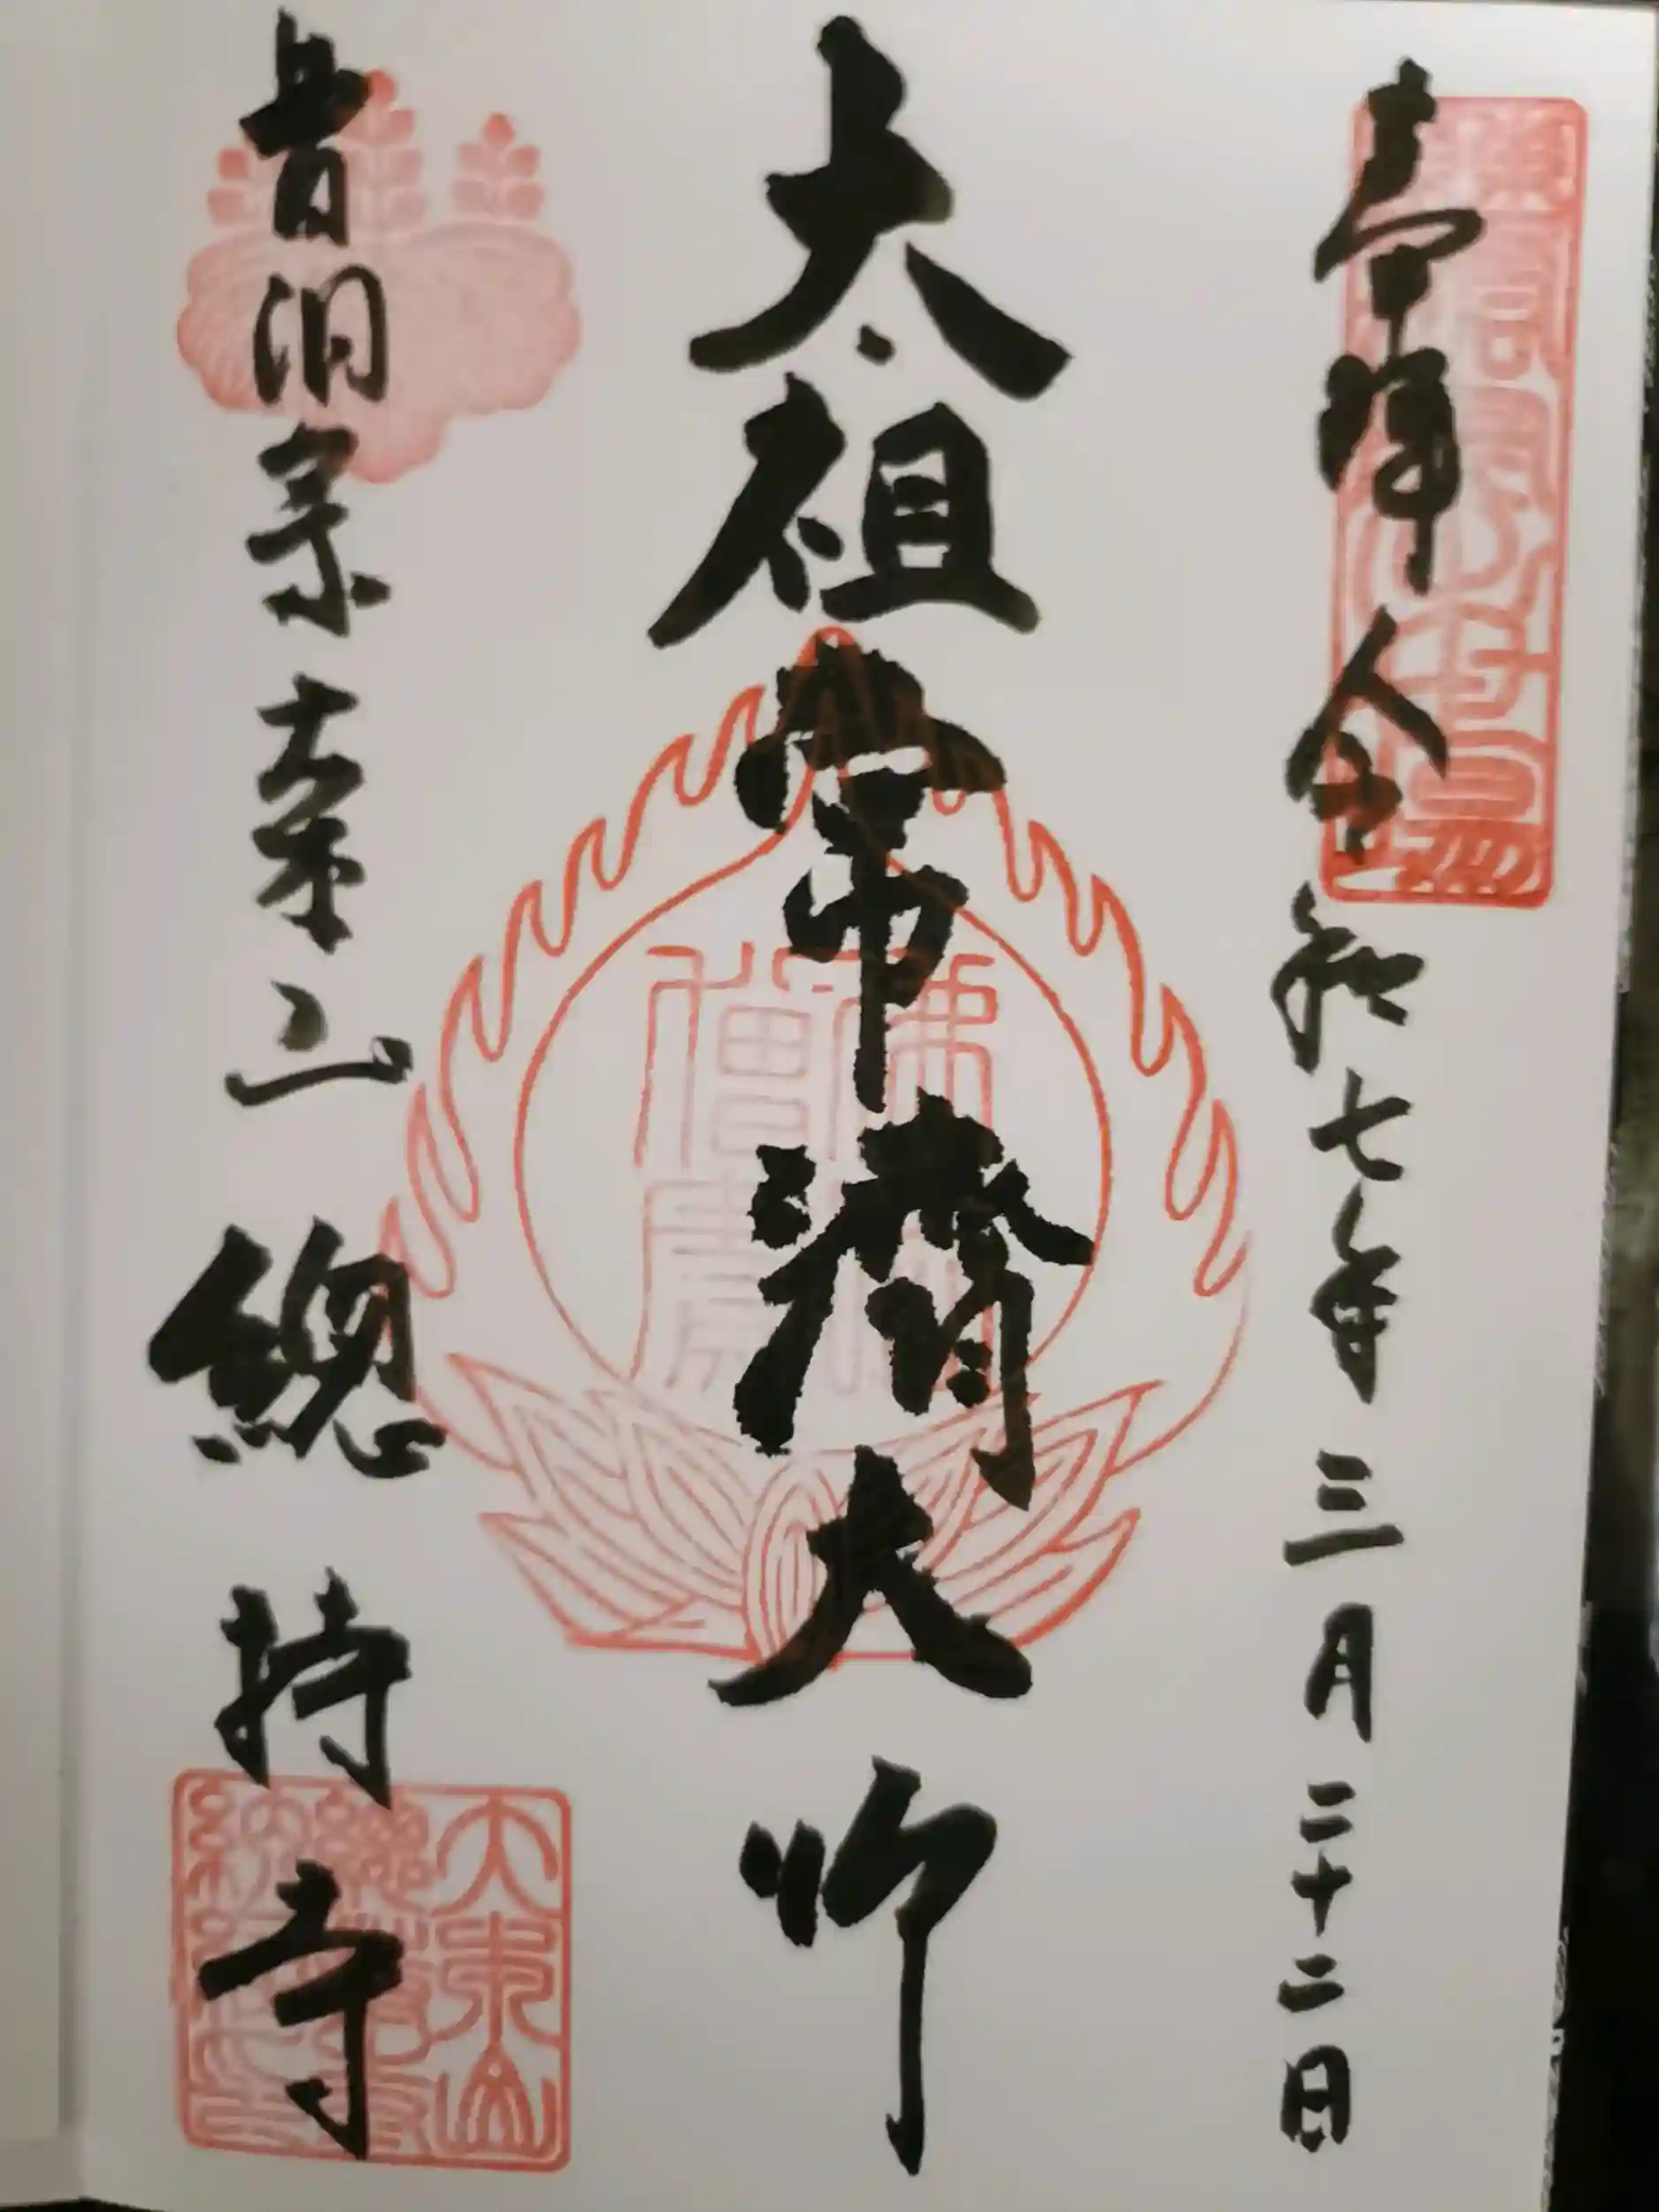 奉拝 令和七年三月二十二日
太祖常濟大師
曹洞宗大本山 總持寺
佛法
僧寶
大本山
總持寺